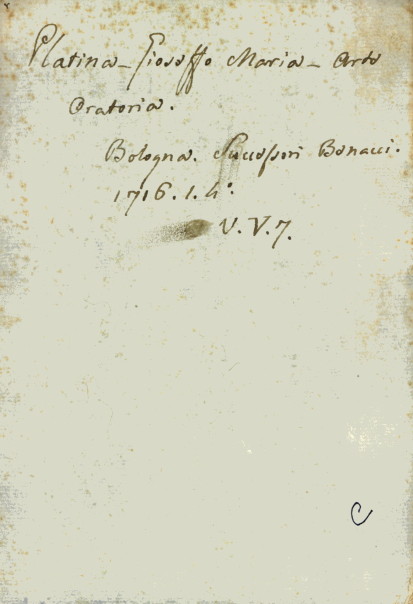 Platina - Gioseffo Maria - Arte
Oratoria.
Bologna. Successori Benacci.
1716. 1. 4º.
V. V. 7.
C